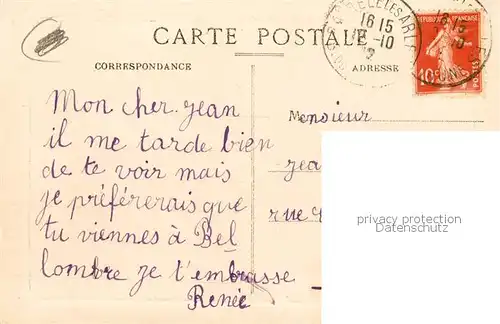 16 15
CARTE POSTALE
CORRESPONDANCE
ADRESSE
REPUBLIQUE FRANÇAISE
10
POSTES
Mon cher jean
il me tarde bien
de te voir mais
je préférerais que
tu viennes à Bel
lombre je t'embrasse
Renée
Monsieur
jea
rue
privacy protection
Datenschutz